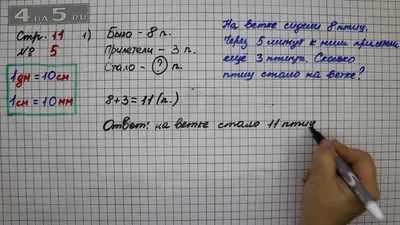 4 ДА 5.
Стр. 11
№ 5
1дм = 10см
1см = 10мм
1) Было - 8 п.
Прилетели - 3 п.
Стало - ? п.
8+3=11(п.)
Ответ: на ветке стало 11 птиц
На ветке сидели 8 птиц.
Через 5 минут к ним прилетели
ещё 3 птицы. Сколько
птиц стало на ветке?